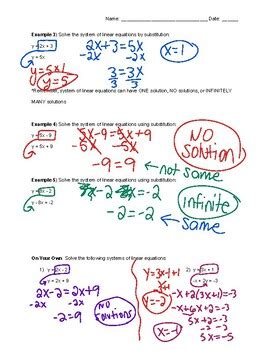 Name: ____________ Date: ______
Example 3) Solve the system of linear equations by substitution:
y = 2x + 3
y = 5x
2x+3=5x
-2x -2x
3 = 3x
3 3
x=1
y=5x1
y=5
*Remember, system of linear equations can have ONE solution, NO solutions, or INFINITELY
MANY solutions
Example 4) Solve the system of linear equations using substitution:
y = 5x - 9
y = 5x + 9
5x-9=5x+9
-5x -5x
-9=9
not same
NO
solution
Example 5) Solve the system of linear equations using substitution:
y = 8x - 2
y - 8x = -2
8x-2-8x=-2
-2=-2
same
infinite
On Your Own: Solve the following systems of linear equations
1) y = 2x - 2
y = 2x + 9
2x-2=2x+9
-2x -2x
-2=9
NO
Solutions
2) y = 3x + 1
y=3x-1+1
y=-2
-x+2(3x+1)=-3
-x+6x+2=-3
5x+2=-3
-2 -2
5x=-5
x=-1